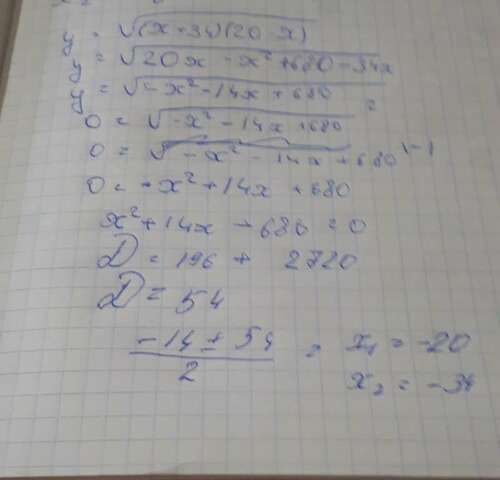 y = √(x+34)(20-x)
y = √20x - x² + 680 - 34x
y = √-x² - 14x + 680 =
0 = √-x² - 14x + 680
0 = √-x² - 14x + 680
0 = -x² + 14x + 680
x² + 14x - 680 = 0
D = 196 + 2720
D = 54
-14 ± 54 / 2 = x₁ = -20
x₂ = -34